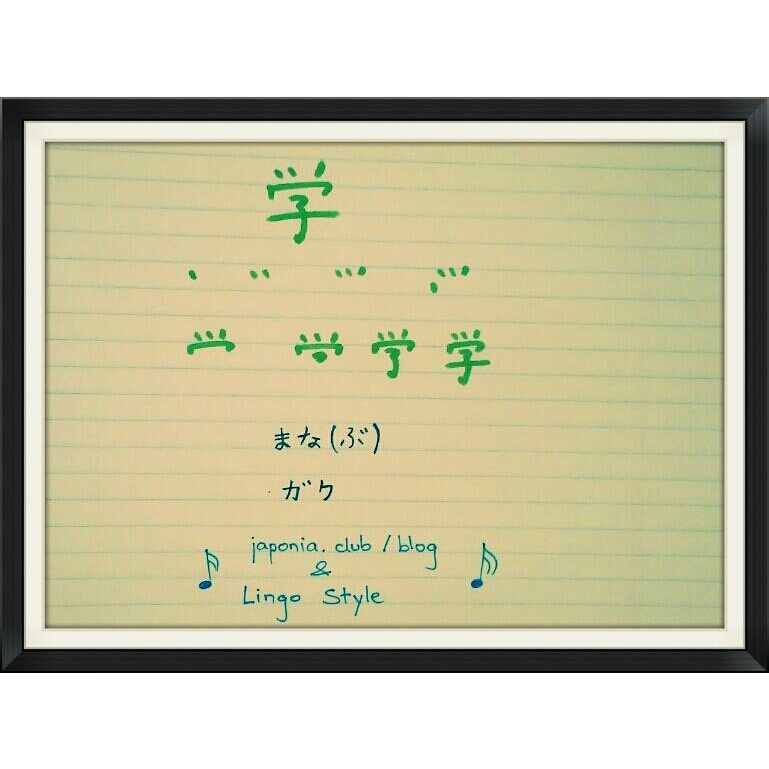 学
学
まな(ぶ)
ガク
japonia.club/blog
&
Lingo Style